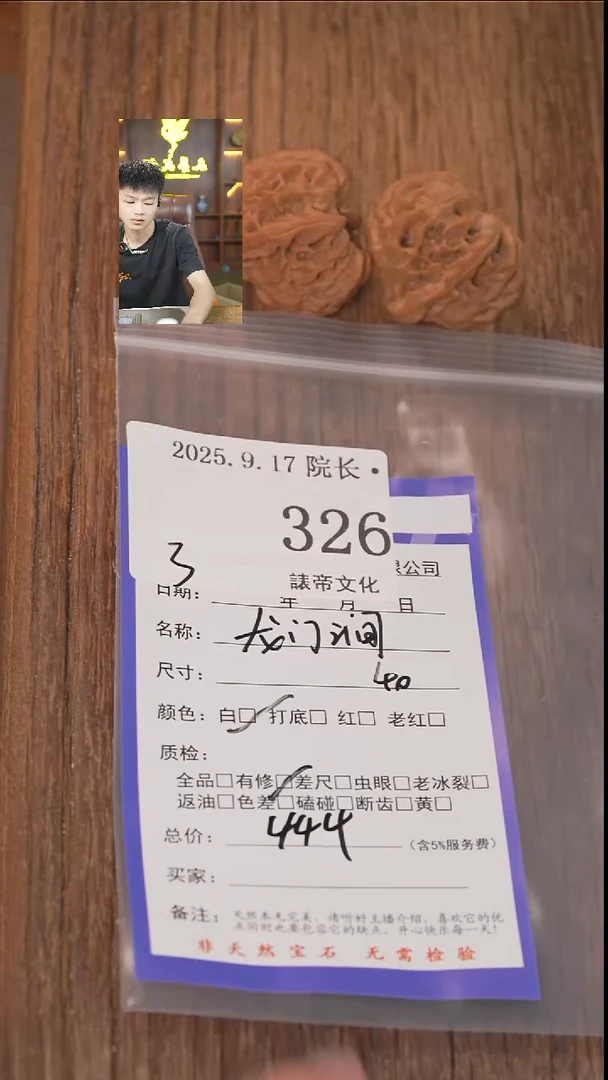 2025.9.17 院长•
326
3
諘帝文化
限公司
日期： 年 月 日
名称： 龙门涧
尺寸： 40
颜色：白□ 打底□ 红□ 老红□
质检：
全品□有修□差尺□虫眼□老冰裂□
返油□色差□磕碰□断齿□黄□
总价： 444 （含5%服务费）
买家：
备注： 天然本无完美，请听好主播介绍，喜欢它的优
点同时也要包容它的缺点，开心快乐每一天！
非天然宝石 无需检验